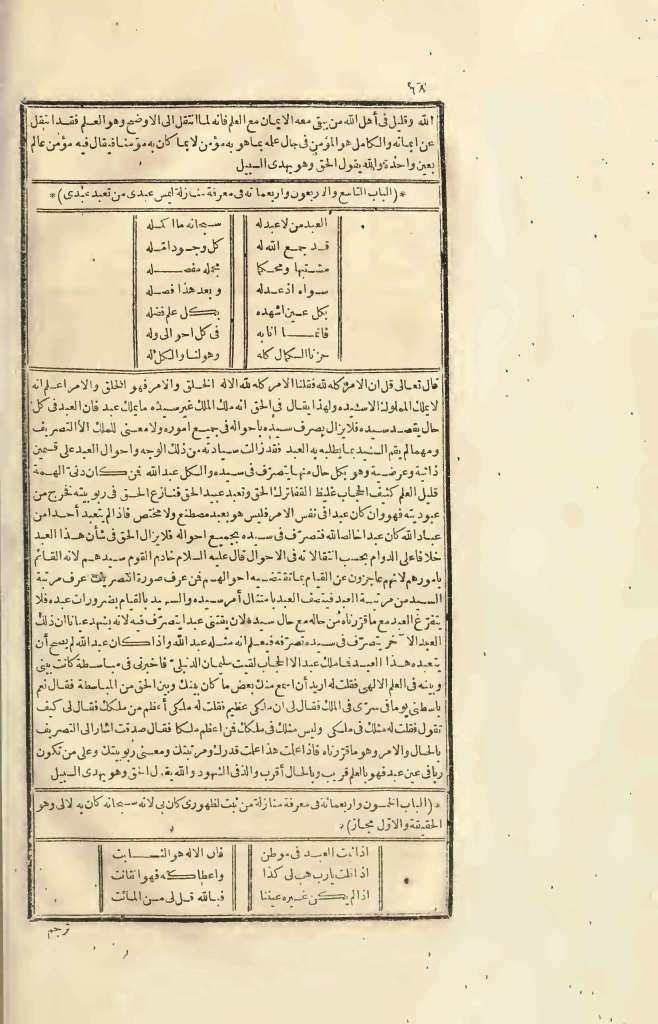 ٦٨
الله وقليل في أهل الله من يبقى معه الايمان مع العلم فانه لما انتقل الى الاوضح وهو العلم فقد انتقل
عن ايمانه والكامل هو المؤمن في حال علمه بما هو به مؤمن لا بما كان به مؤمنا فيقال فيه مؤمن عالم
بعين واحدة والله يقول الحق وهو يهدى السبيل
*(الباب التاسع والاربعون واربعمائة في معرفة منازلة ليس عبدى من تعبد عبدى)*
العبد من لا عبد له سبحانه ما أكمله
قد جمع الله له كل وجود أمّله
مشتبها ومحكما مجمله مفصله
سواه اذ عدله وبعد هذا فصله
بكل عين اشهده بكل علم فضله
فانما انا به في كل احوالى وله
حزنا الكمال كله وهو لنا والكل له
قال تعالى قل ان الامر كله لله فقلنا الامر كله لله الاله الخلق والامر فهو الخلق والامر اعلم انه
لا يملك المملوك الا سيده ولهذا يقال في الحق انه ملك الملك غير سيده ما يملك عبد فان العبد في كل
حال يقصد سيده فلا يزال يصرف سيده باحواله في جميع اموره ولا معنى للملك الا التصريف
ومهما لم يقم السيد بما يطلبه به العبد فقد زالت سيادته من ذلك الوجه واحوال العبد على قسمين
ذاتية وعرضية وهو بكل حال منها يتصرف في سيده والكل عبد الله فمن كان دنى الهمة
قليل العلم كثيف الحجاب غليظ القفا ترك الحق وتعبد عبيد الحق فنازع الحق في ربوبيته فخرج من
عبوديته فهو وان كان عبدا في نفس الامر فليس هو بعبد مصطنع ولا مختص فاذا لم يتعبد أحدا من
عباد الله كان عبدا خالصا لله فتصرف في سيده بجميع احواله فلا يزال الحق في شأن هذا العبد
خلاقا على الدوام بحسب انتقالاته في الاحوال قال عليه السلام خادم القوم سيدهم لانه القائم
بامورهم لانهم عاجزون عن القيام بما تقتضيه احوالهم فمن عرف صورة التصريف عرف مرتبة
السيد من مرتبة العبد فيتصف العبد بامتثال أمر سيده والسيد بالقيام بضرورات عبده فلا
يتفرغ العبد مع ما قررناه من حاله مع حال سيده لان يقتنى عبدا يتصرف فيه لانه يشهد عيانا ان ذلك
العبد الآخر يتصرف في سيده تصرفه فيعلم انه مثله عبد الله واذا كان عبد الله لم يصح أن
يتعبده هذا العبد فما ملك عبد الا بحجاب لقيت سليمان الدنبلى فاخبرنى في مباسطة كانت بينى
وبينه في العلم الالهى فقلت له اريد أن اسمع منك بعض ما كان بينك وبين الحق من المباسطة فقال نعم
باسطنى يوما في سرى في الملك فقال لى ان ملكى عظيم فقلت له ملكى أعظم من ملكك فقال لى كيف
تقول فقلت له مثلك في ملكى وليس مثلك في ملكك فمن اعظم ملكا فقال صدقت اشار الى التصريف
بالحال والامر وهو ما قررناه فاذا علمت هذا علمت قدرك ومرتبتك ومعنى ربوبيتك وعلى من تكون
ربا في عين عبد فهو بالعلم قريب وبالحال أقرب والذ في الشهود والله يقول الحق وهو يهدى السبيل
*(الباب الخمسون واربعمائة في معرفة منازلة من ثبت لظهورى كان بى لانه سبحانه كان به لا لى وهو
الحقيقة والاول مجاز)*
اذا ثبت العبد في موطن فان الاله هو الثابت
اذا قلت يا رب هب لى كذا واعطاكه فهو القانت
اذا لم يكن غيره عيننا فبالله قل لى من المائت
ترجم